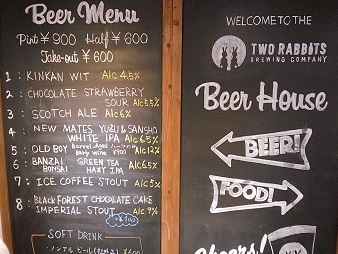 Beer Menu
Pint ¥900 Half ¥600
Take-out ¥600
1 : KINKAN WIT Alc 4.5%
2 : CHOCOLATE STRAWBERRY
SOUR Alc 5.5%
3 : SCOTCH ALE Alc 6%
4 : NEW MATES YUZU & SANSHO
WHITE IPA Alc 6.5%
5 : OLD BOY Barrel Aged
Barley wine ¥900 Alc 12%
6 : BANZAI BONSAI GREEN TEA
HAZY IPA Alc 6.5%
7 : ICE COFFEE STOUT Alc 5%
8 : BLACK FOREST CHOCOLATE CAKE
IMPERIAL STOUT Alc 9%
SOFT DRINK
WELCOME TO THE
TWO RABBITS
BREWING COMPANY
Beer House
BEER!
FOOD!
Cheers!